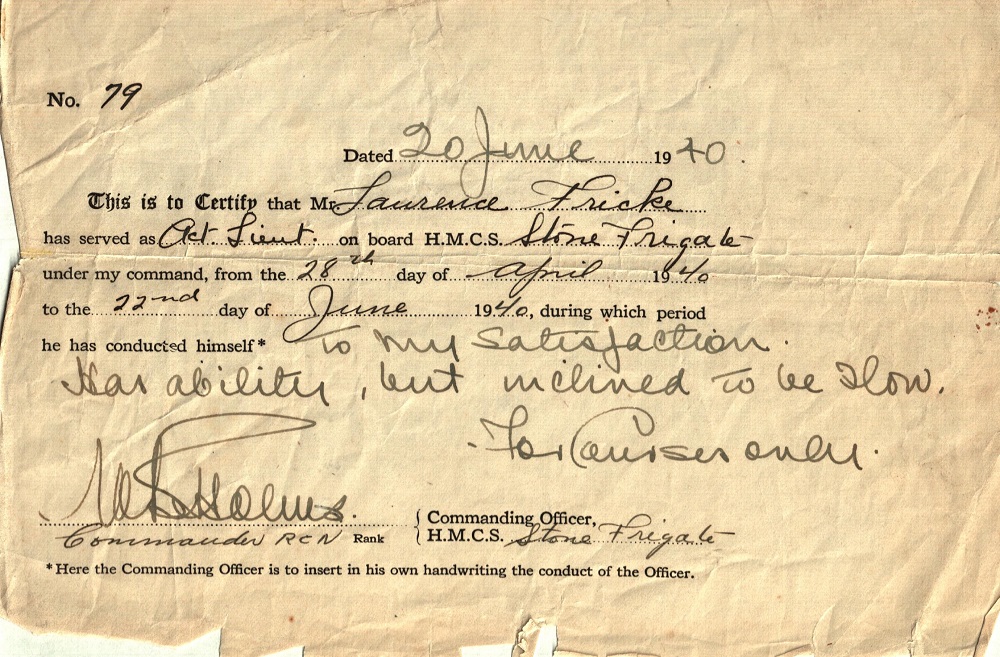 No. 79
Dated 20 June 1940.
This is to Certify that Mr. Laurence Fricke
has served as Act. Lieut. on board H.M.C.S. Stone Frigate
under my command, from the 28th day of April 1940
to the 22nd day of June 1940, during which period
he has conducted himself* To my satisfaction.
Has ability, but inclined to be slow.
For Courses only.
Holms.
Commander RCN Rank
Commanding Officer,
H.M.C.S. Stone Frigate
*Here the Commanding Officer is to insert in his own handwriting the conduct of the Officer.